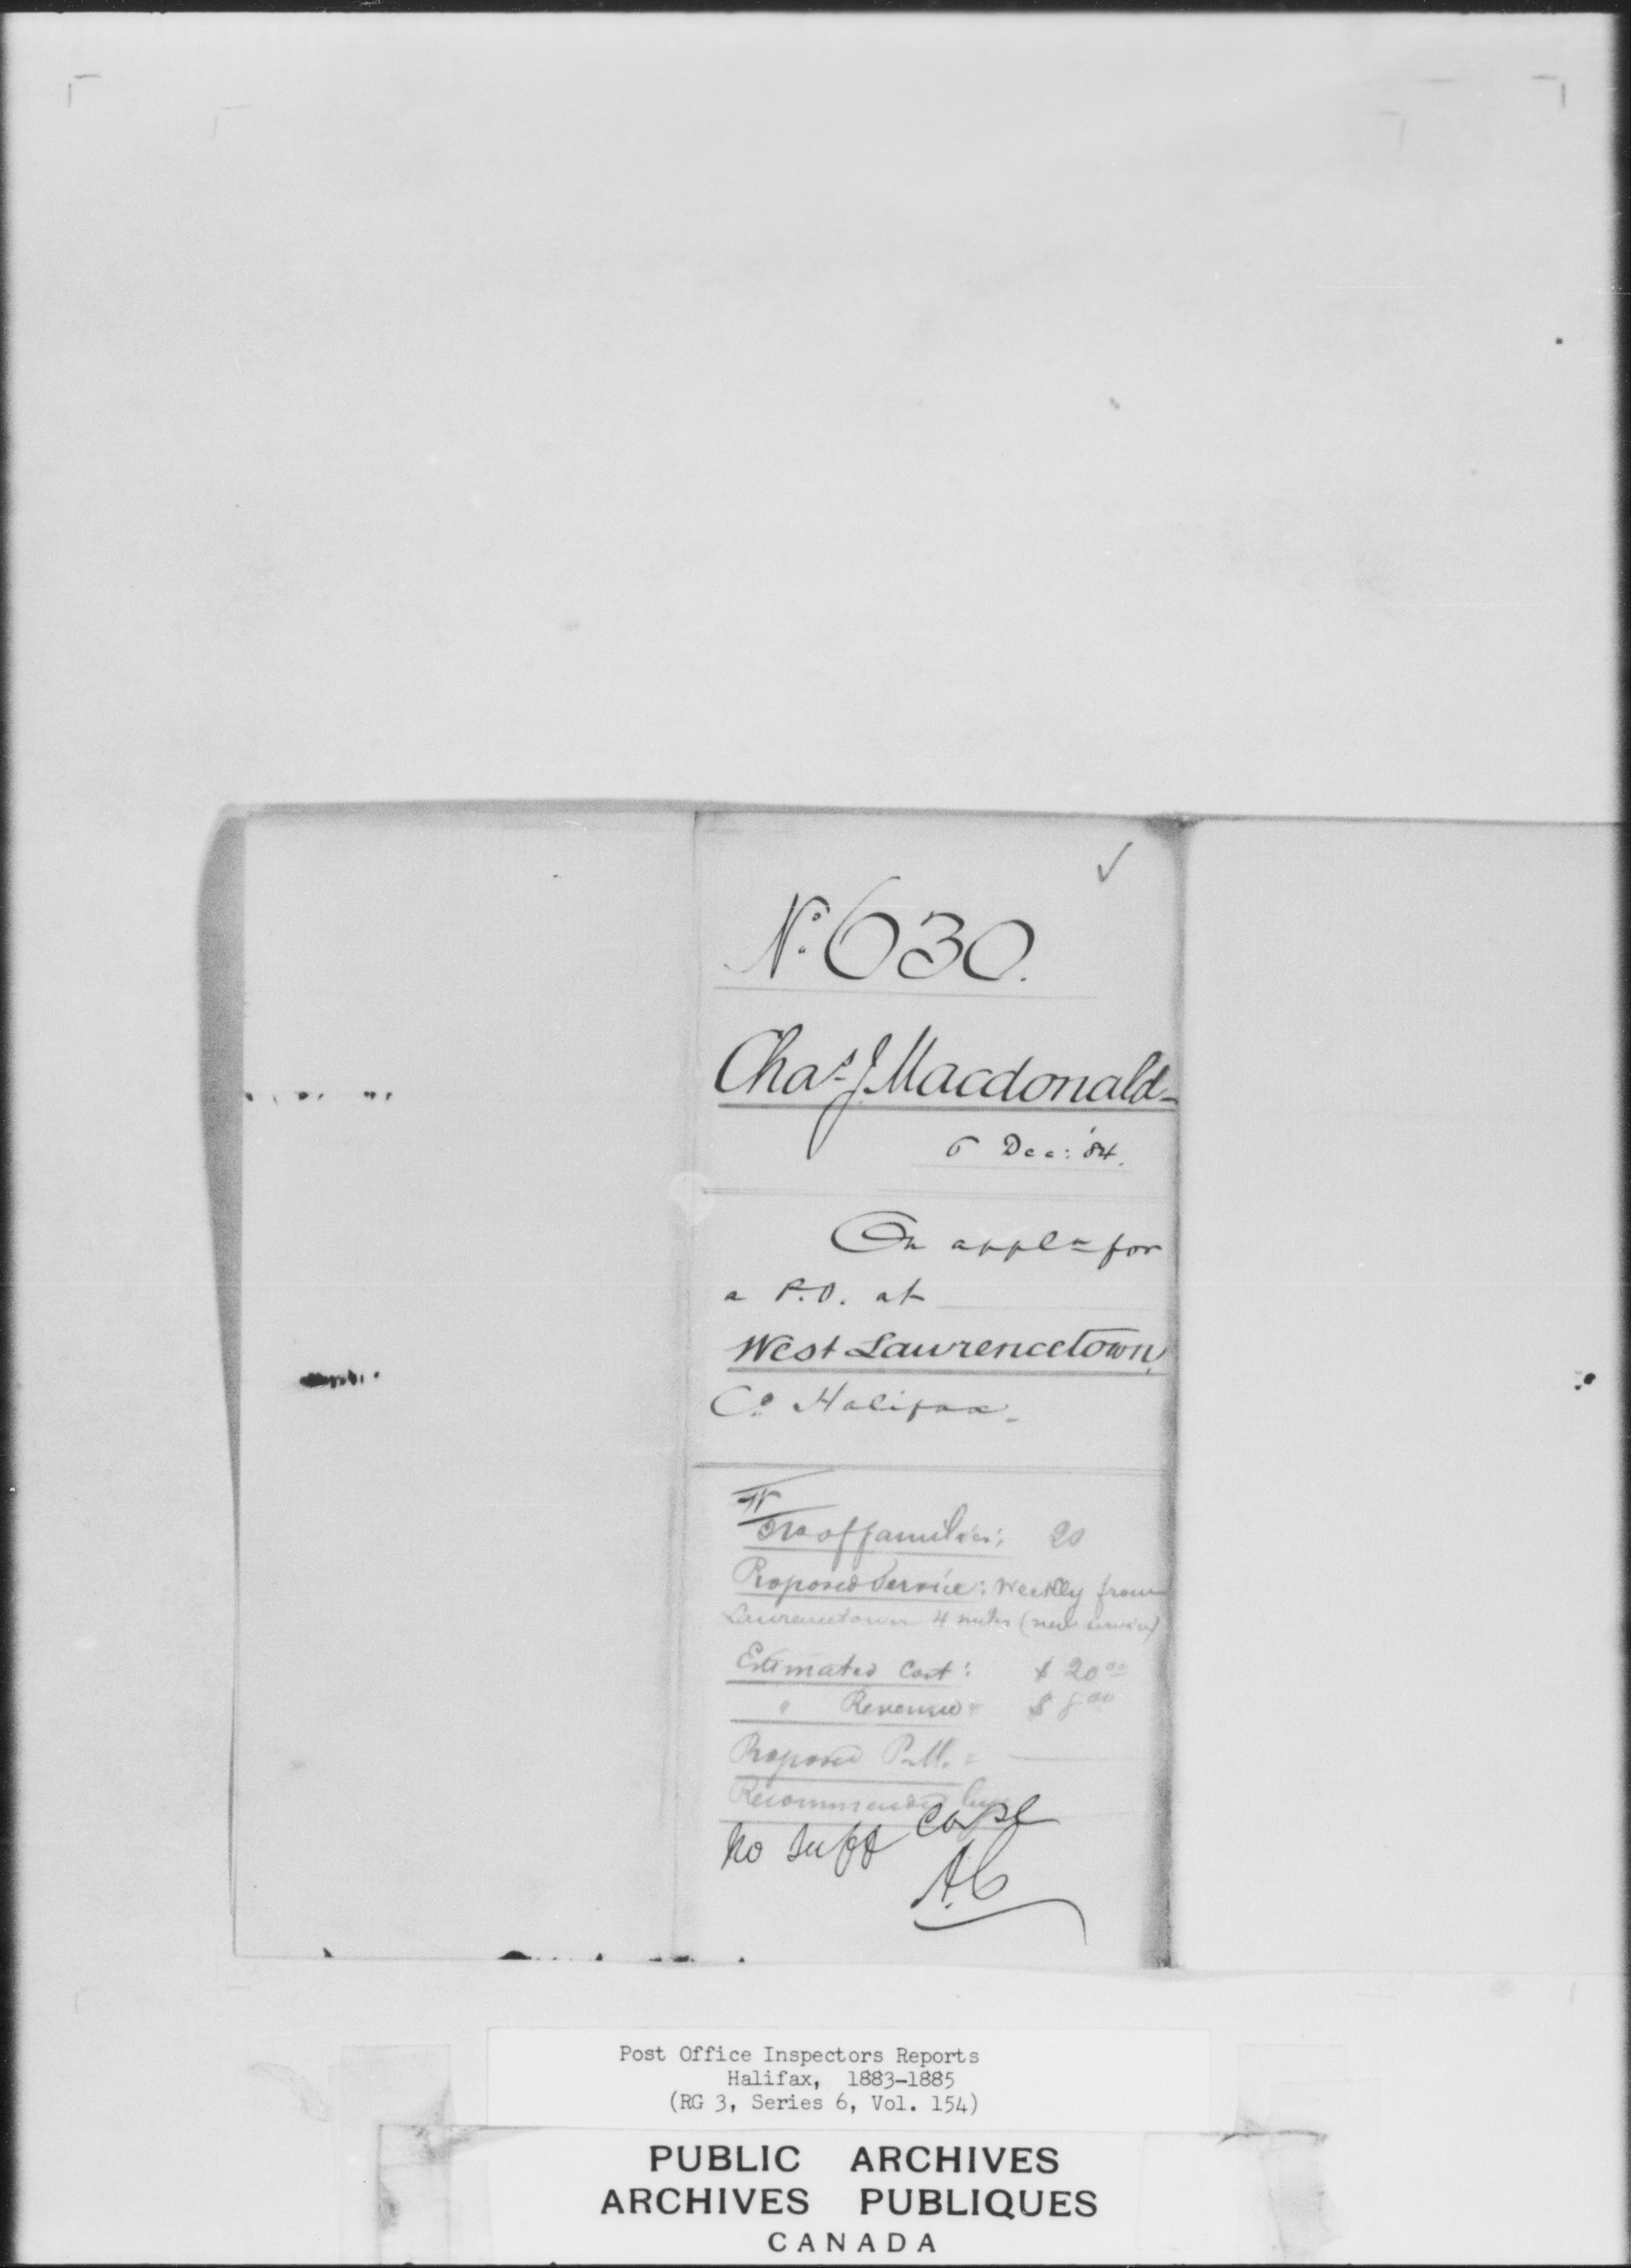 No. 630.
Chas. J. Macdonald
6 Dec: '84.
On appln for
a P.O. at
West Lawrencetown,
Co. Halifax.
No of families: 20
Proposed Service: Weekly from
Lawrencetown 4 miles (new service)
Estimated Cost: $20.00
" Revenue: $8.00
Proposed P.M. =
Recommended
No suff case
A.C
Post Office Inspectors Reports
Halifax, 1883-1885
(RG 3, Series 6, Vol. 154)
PUBLIC ARCHIVES
ARCHIVES PUBLIQUES
CANADA